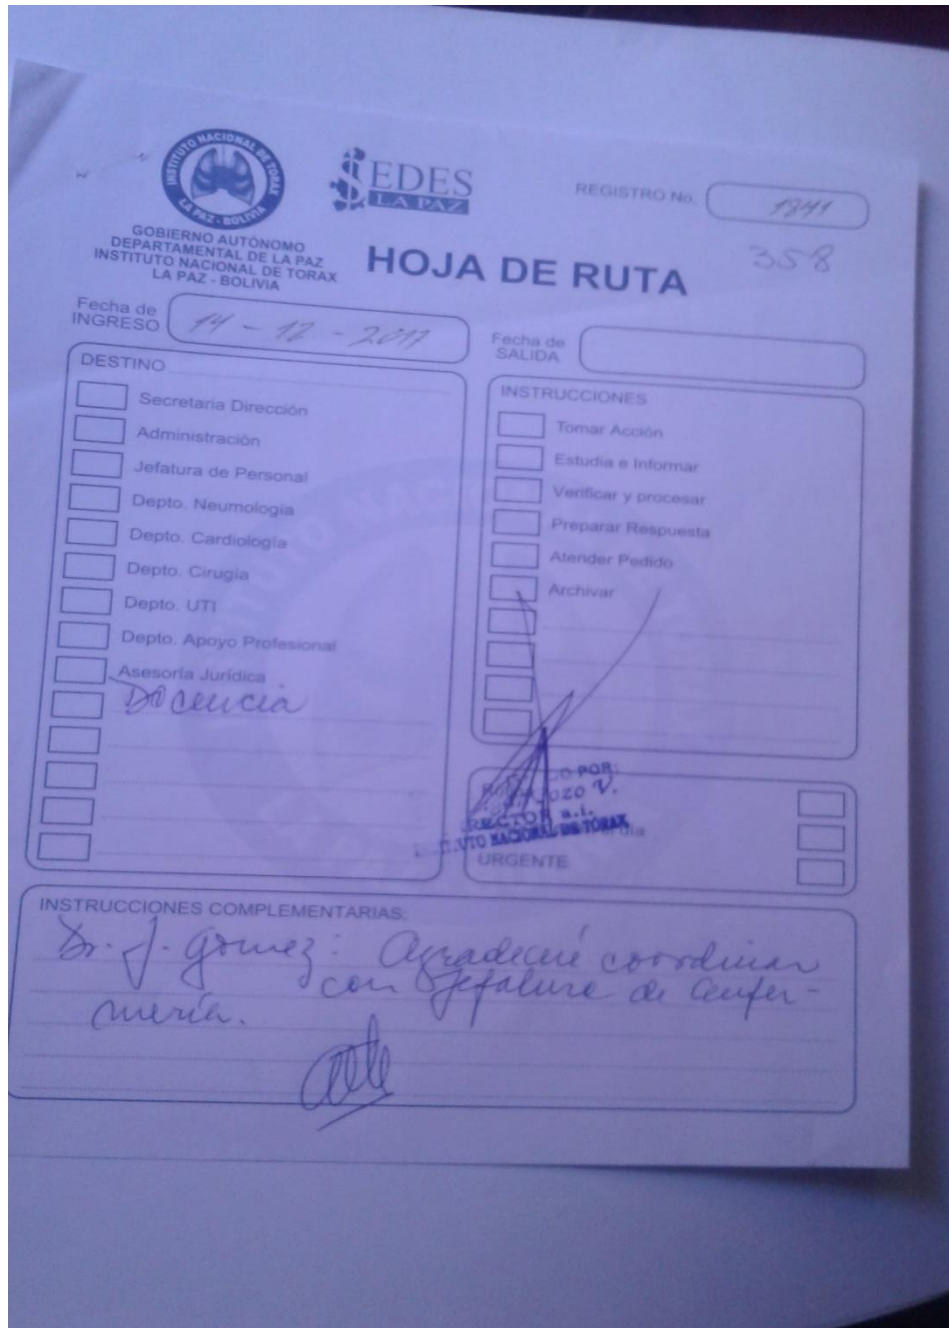 INSTITUTO NACIONAL DE TORAX
LA PAZ - BOLIVIA
SEDES
LA PAZ
REGISTRO No.
1841
358
GOBIERNO AUTÓNOMO
DEPARTAMENTAL DE LA PAZ
INSTITUTO NACIONAL DE TORAX
LA PAZ - BOLIVIA
HOJA DE RUTA
Fecha de
INGRESO
14 - 12 - 2017
Fecha de
SALIDA
DESTINO
Secretaria Dirección
Administración
Jefatura de Personal
Depto. Neumología
Depto. Cardiología
Depto. Cirugía
Depto. UTI
Depto. Apoyo Profesional
Asesoría Jurídica
Docencia
INSTRUCCIONES
Tomar Acción
Estudia e Informar
Verificar y procesar
Preparar Respuesta
Atender Pedido
Archivar
POR:
V.
a.i.
NACIONAL DE TÓRAX
URGENTE
INSTRUCCIONES COMPLEMENTARIAS:
Dr. J. Gómez: Agradeceré coordinar
con Jefatura de Enfer-
mería.